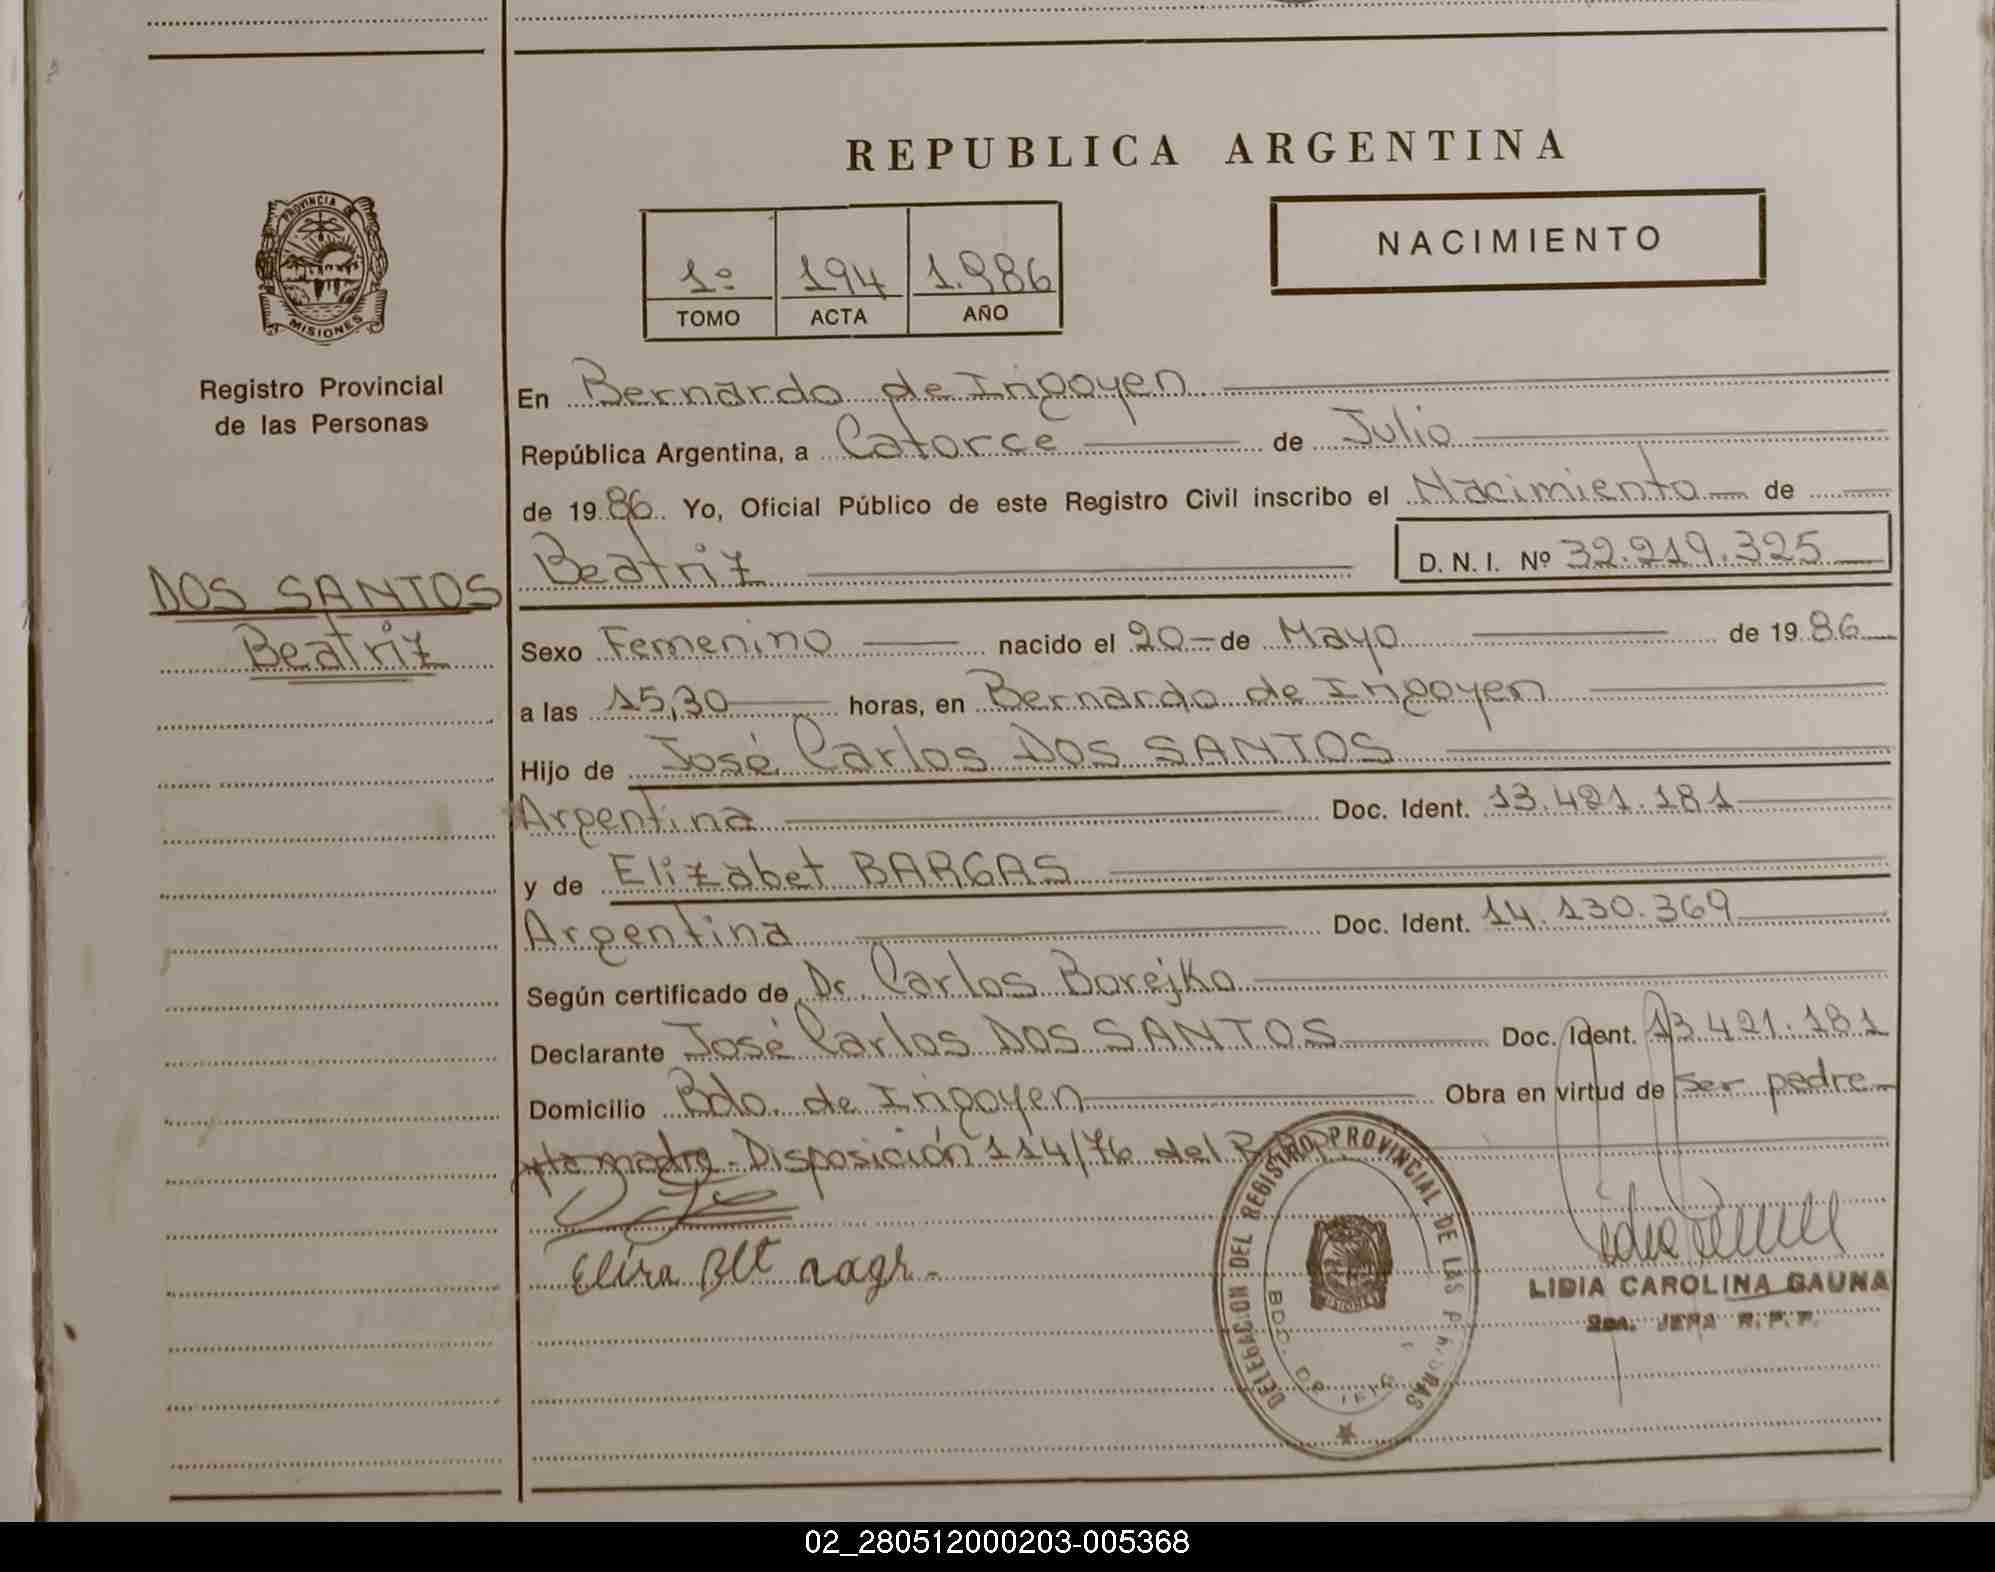 REPUBLICA ARGENTINA
PROVINCIA DE
MISIONES
Registro Provincial
de las Personas
1º 194 1.986
TOMO ACTA AÑO
NACIMIENTO
En Bernardo de Irigoyen
República Argentina, a Catorce de Julio
de 1986 Yo, Oficial Público de este Registro Civil inscribo el Nacimiento de
Beatriz D. N. I. Nº 32.219.325
DOS SANTOS
Beatriz
Sexo Femenino nacido el 20 de Mayo de 1986
a las 15,30 horas, en Bernardo de Irigoyen
Hijo de José Carlos DOS SANTOS
Argentina Doc. Ident. 13.421.181
y de Elizabet BARGAS
Argentina Doc. Ident. 14.130.369
Según certificado de Dr. Carlos Borejko
Declarante José Carlos DOS SANTOS Doc. Ident. 13.421.181
Domicilio Bdo. de Irigoyen Obra en virtud de ser padre
y la madre - Disposición 114/76 del
DELEGACION DEL REGISTRO PROVINCIAL DE LAS PERSONAS
BDO. DE
MISIONES
LIDIA CAROLINA GAUNA
JEFA R.P.P.
02_280512000203-005368